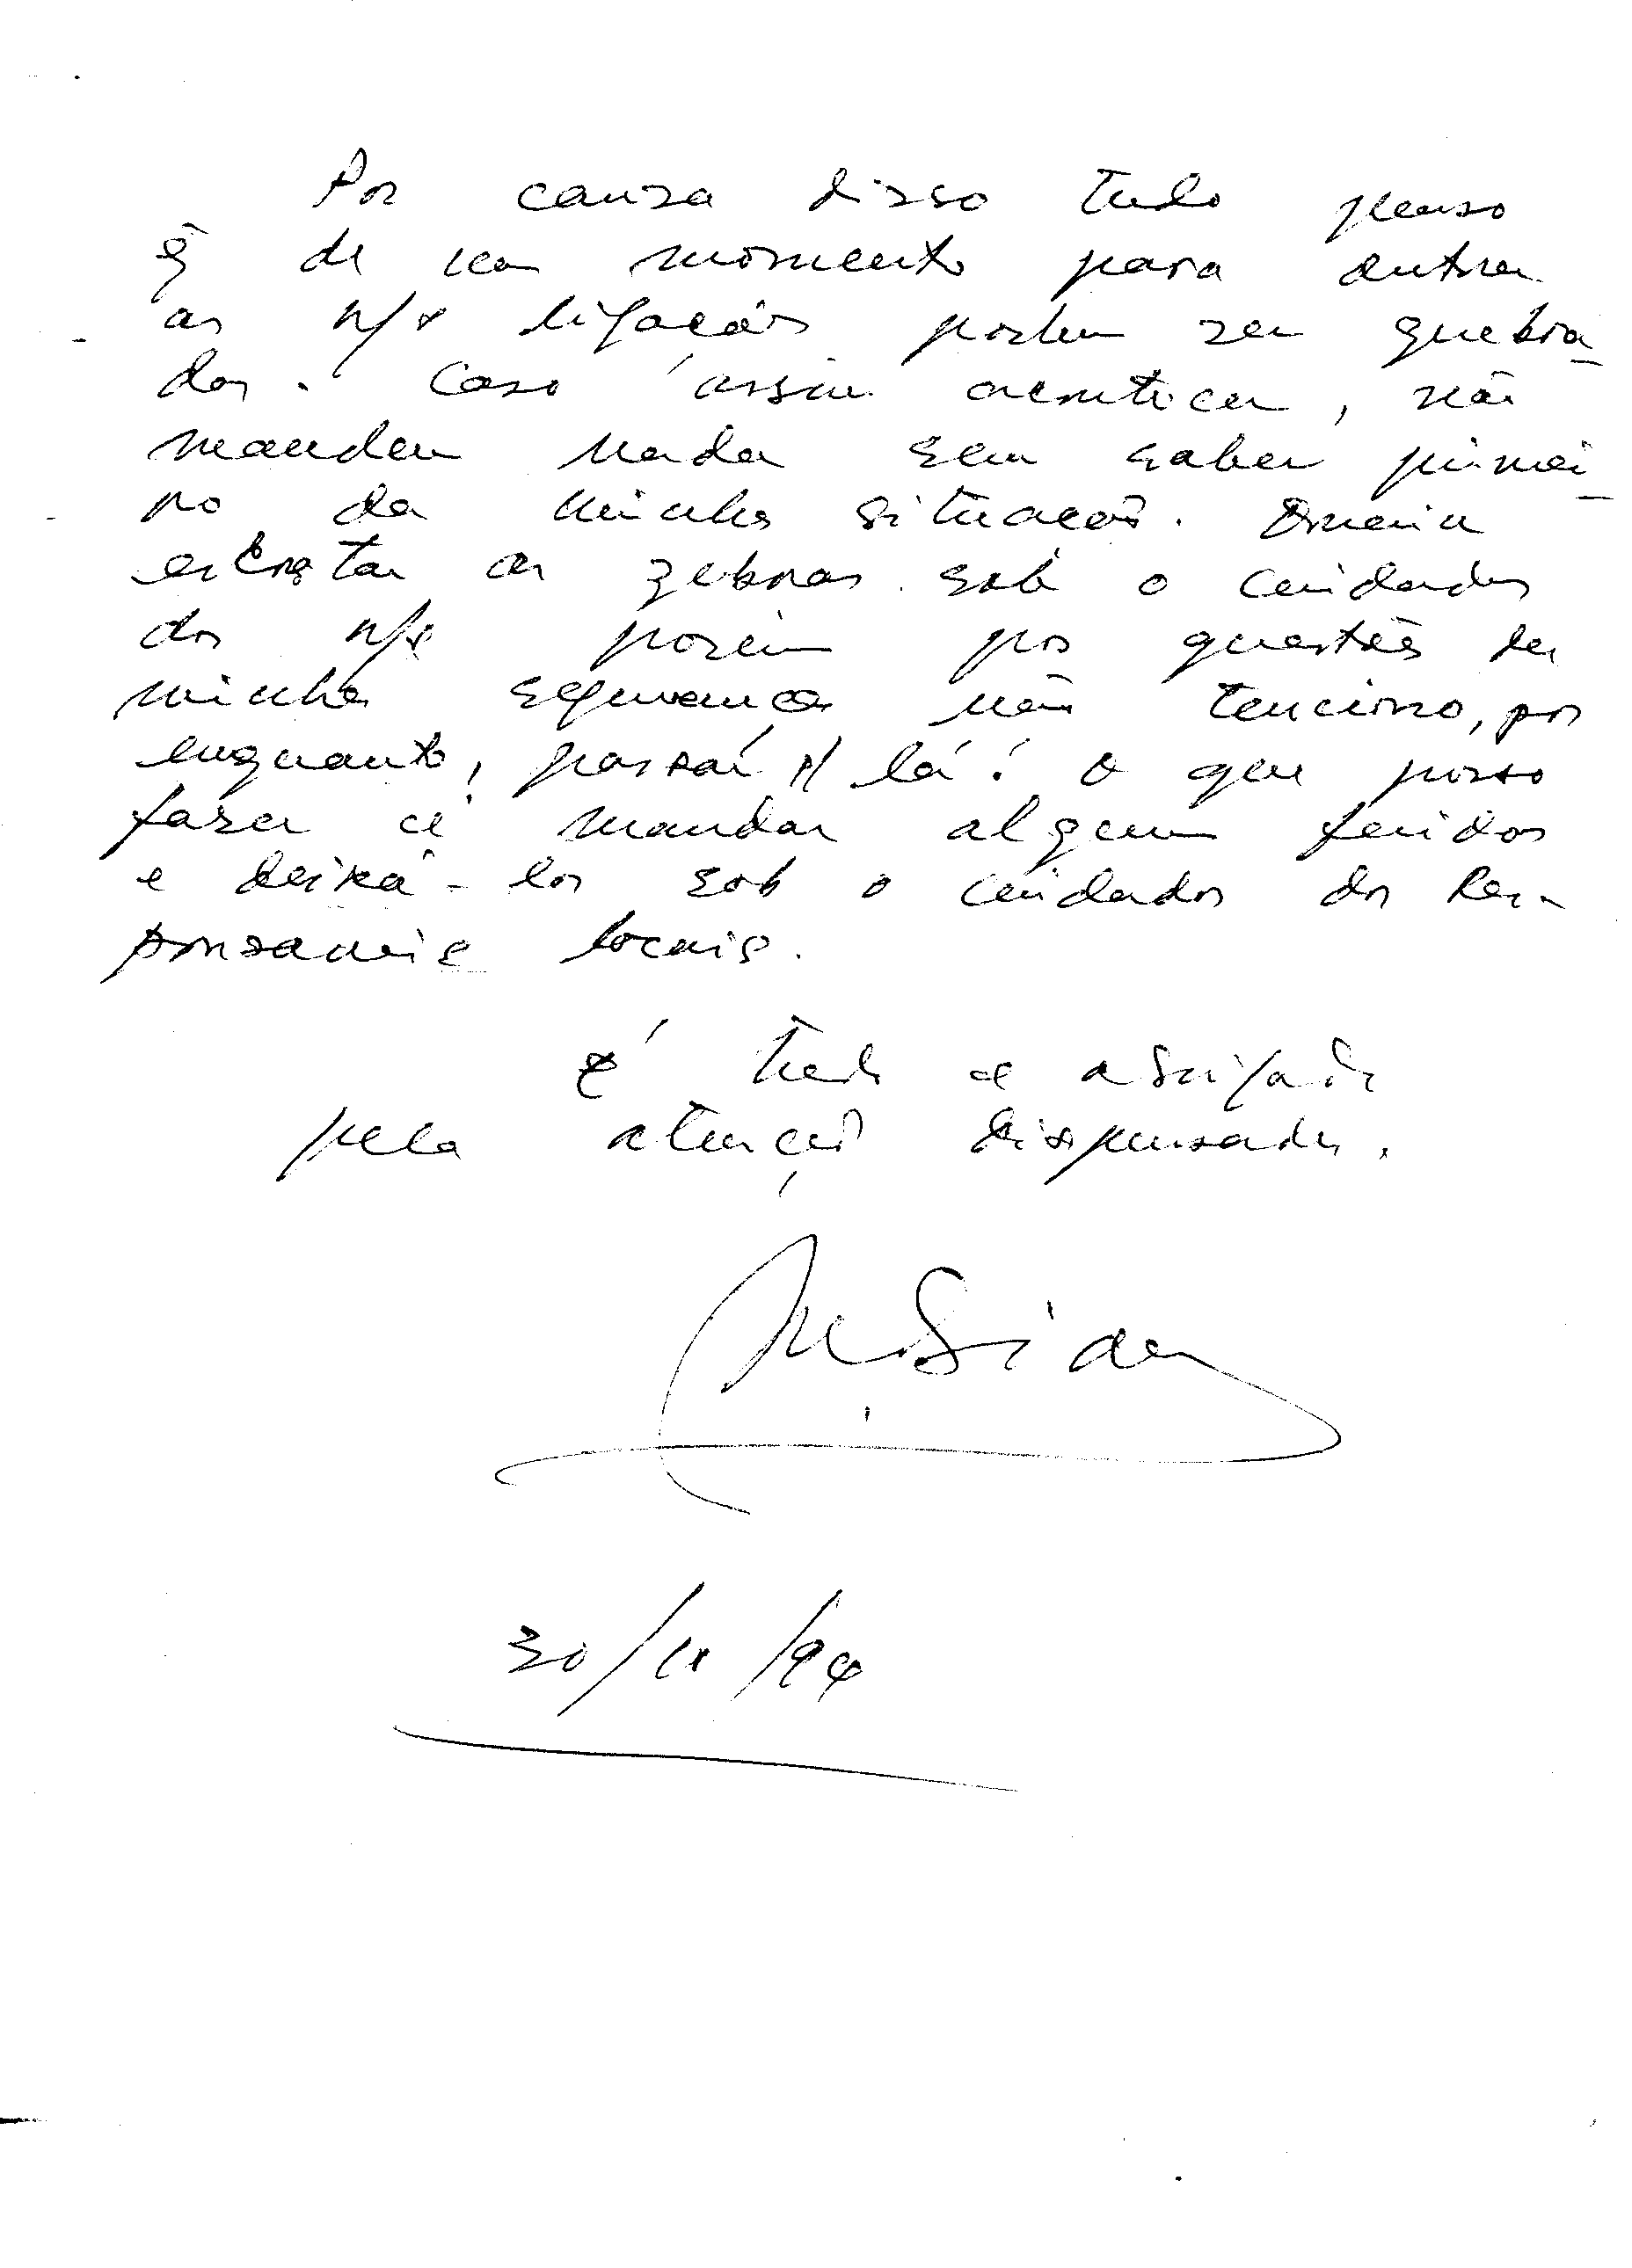 Por causa disso tudo penso
q̃ de um momento para outra
as n/s ligações podem ser quebra-
das. Caso assim acontecer, não
mandem nada sem saber primei-
ro da minha situação. Queria
as zebras sob o cuidados
dos n/s porém por questões de
minha segurança não tenciono, por
enquanto, passar p/ lá! O que posso
fazer é mandar alguns feridos
e deixá-los sob o cuidados dos Res-
ponsaveis locais.
É tudo e abrigado
pela atenção dispensada.
30/11/94